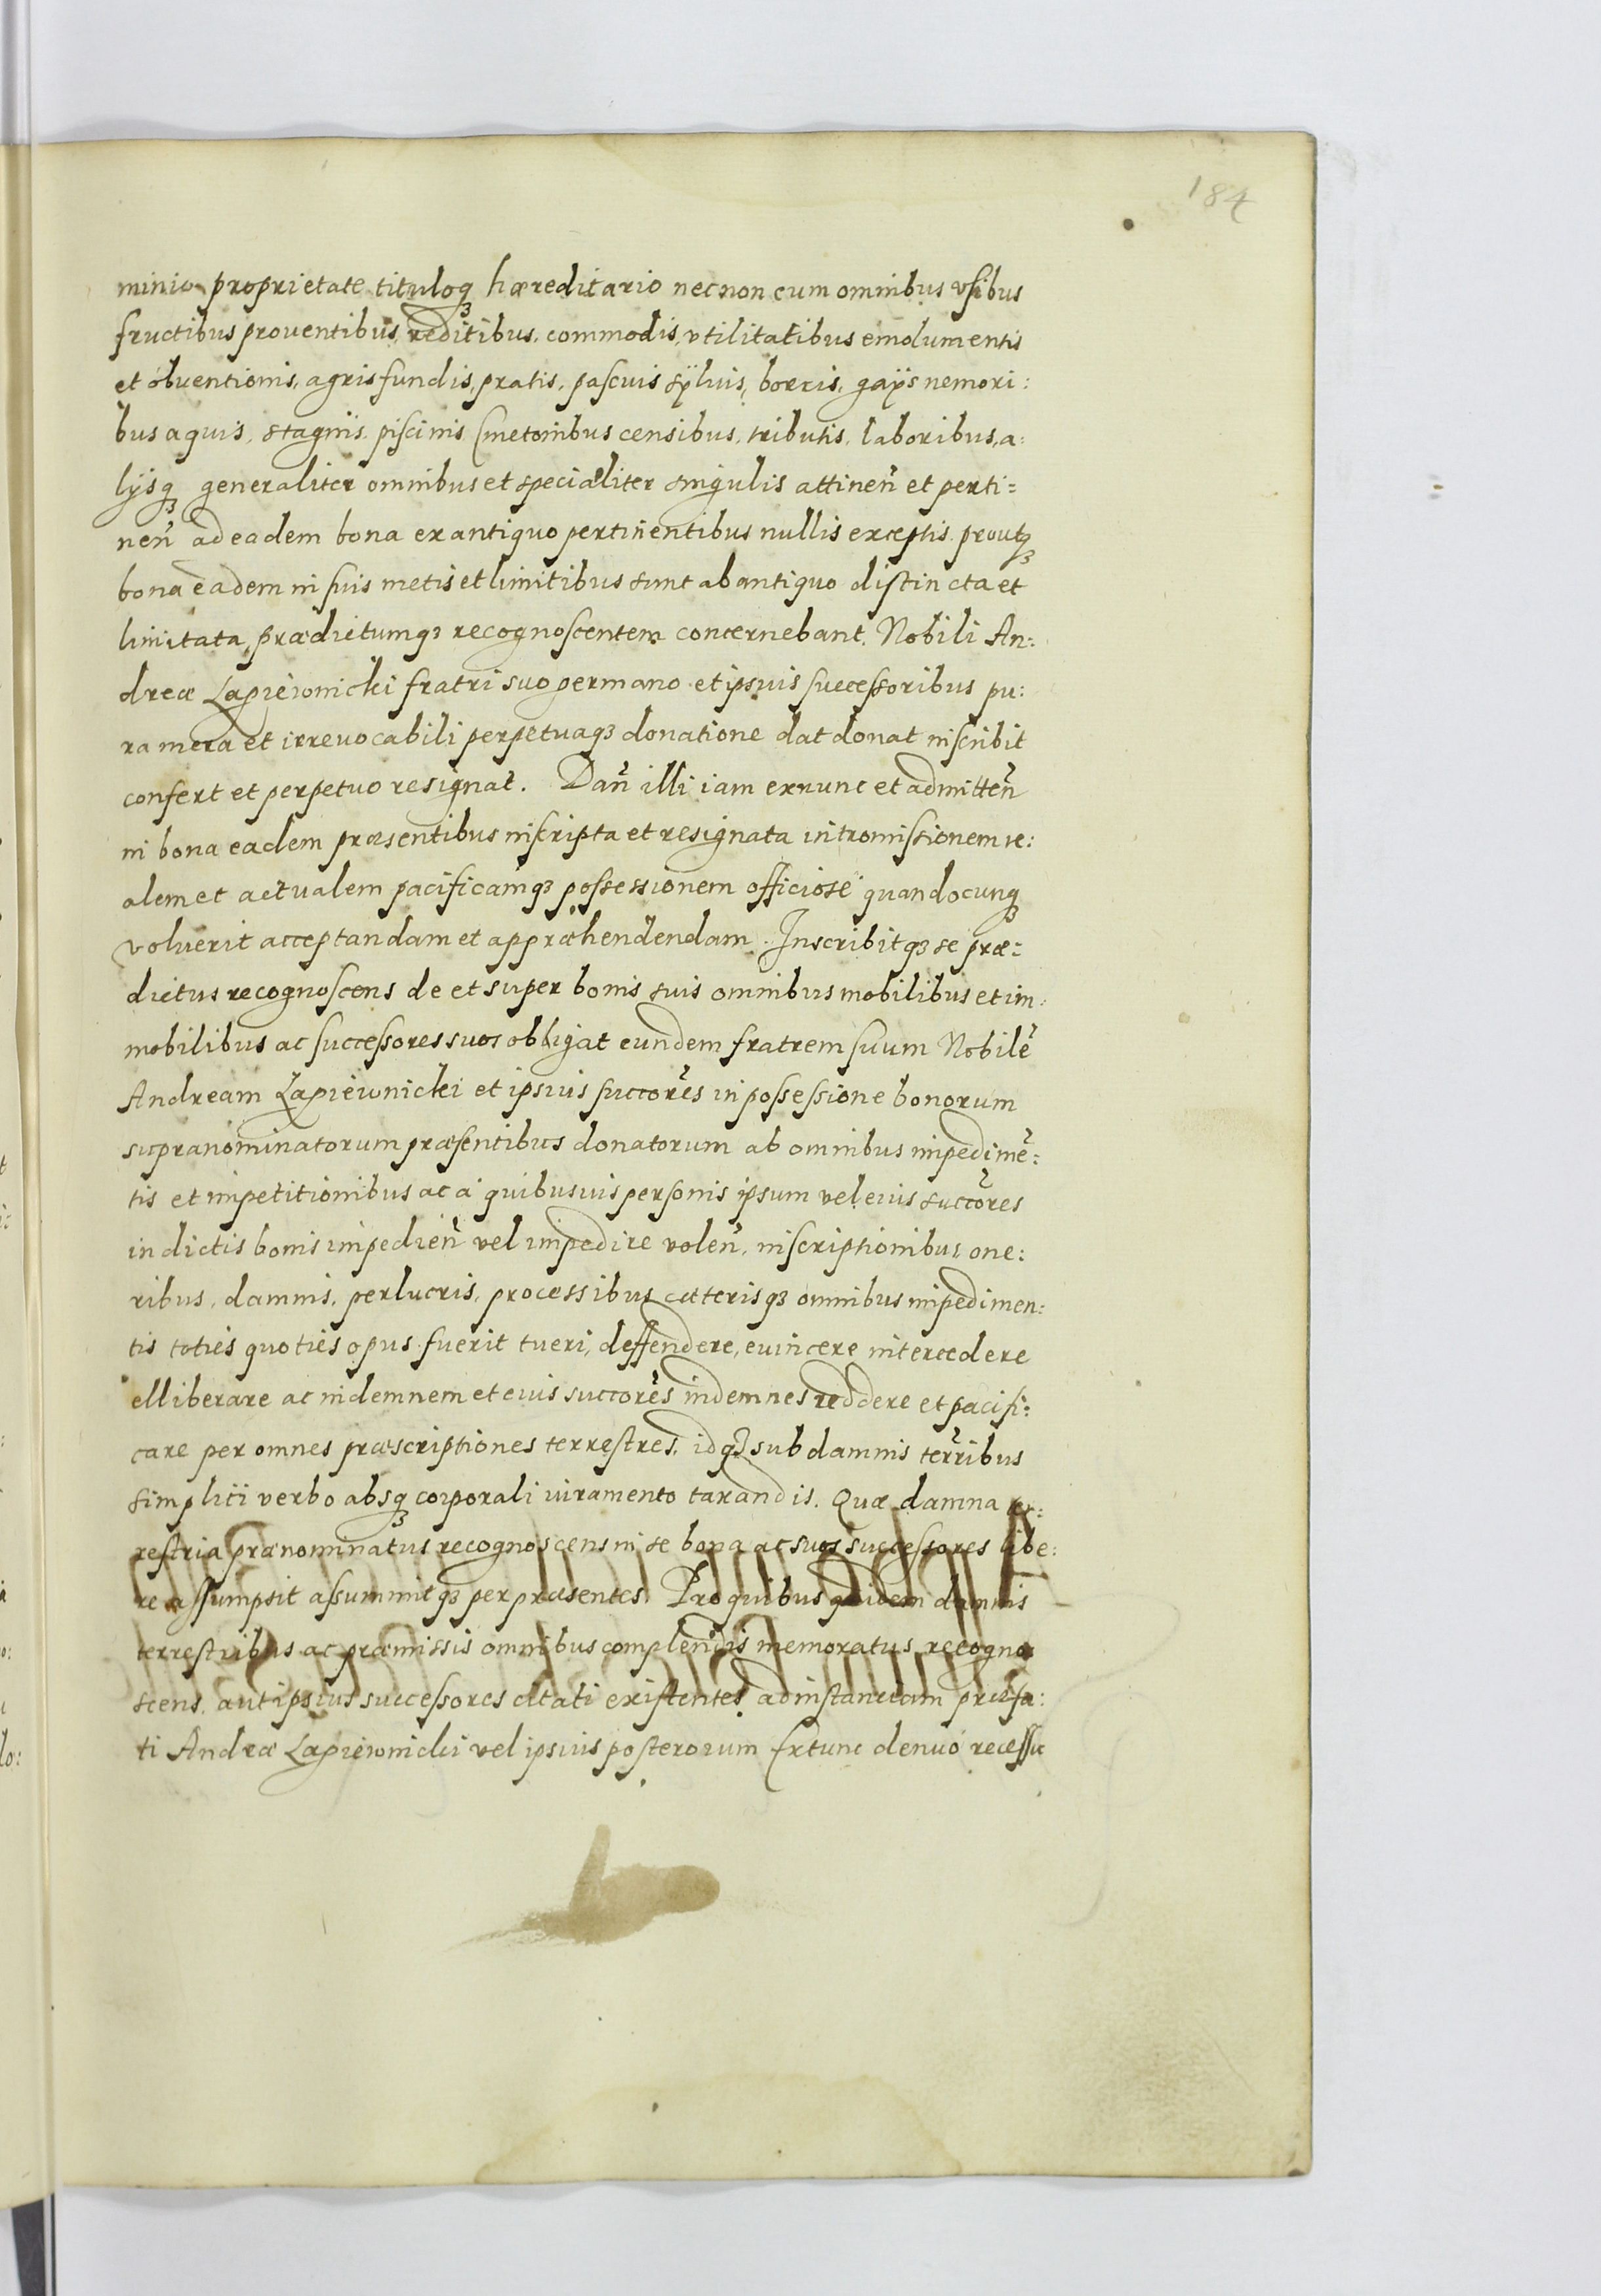 184
minio proprietate tituloqȝ hæreditario necnon cum omnibus vsibus
fructibus prouentibus, reditibus, commodis, vtilitatibus emolumentis
et obuentionis, agris fundis, pratis, pascuis sÿluis, borris, gaÿs nemori:
bus aquis, stagnis, piscinis, Cmetonibus censibus, tributis, laboribus, a:
lÿsqȝ generaliter omnibus et specialiter singulis attineñ et perti=
neñ ad eadem bona ex antiquo pertinentibus nullis exceptis. proutqȝ
bona eadem in suis metis et limitibus sunt ab antiquo distincta et
limitata, prædictumqȝ recognoscentem concernebant. Nobili An:
dreæ Łapiewnicki fratri suo germano et ipsius successoribus pu:
ra mera et irreuocabili perpetuaqȝ donatione dat donat inscribit
confert et perpetuo resignat. Dañ illi iam exnunc et admitteñ
in bona eadem præsentibus inscripta et resignata intromissionem re:
alem et actualem pacificamqȝ possessionem officiose quandocunqȝ
voluerit acceptandam et appræhendendam. Inscribitqȝ se præ:
dictus recognoscens de et super bonis suis omnibus mobilibus et im:
mobilibus ac successores suos obligat eundem fratrem suum Nobilē
Andream Łapiewnicki et ipsius succores in possessione bonorum
supranominatorum præsentibus donatorum ab omnibus impedimē:
tis et impetitionibus ac a quibusuis personis ipsum vel eius succores
in dictis bonis impedieñ vel impedire voleñ, inscriptionibus one:
ribus, damnis, perlucris, processibus cæterisqȝ omnibus impedimen:
tis toties quoties opus fuerit tueri, deffendere, euincere intercedere
elliberare ac indemnem et eius succores indemnes reddere et pacifi:
care per omnes præscriptiones terrestres, idqȝ sub damnis terribus
simplici verbo absqȝ corporali iuramento taxandis. Quæ damna ter:
restria prænominatus recognoscens in se bona ac suos successores libe:
re assumpsit assummitqȝ per præsentes. Pro quibus quidem damnis
terrestribus ac præmissis omnibus complendis memoratus recogno
scens aut ipsius successores citati existentes ad instantiam præfa:
ti Andreæ Łapiewnicki vel ipsius posterorum Extunc denuo recessu